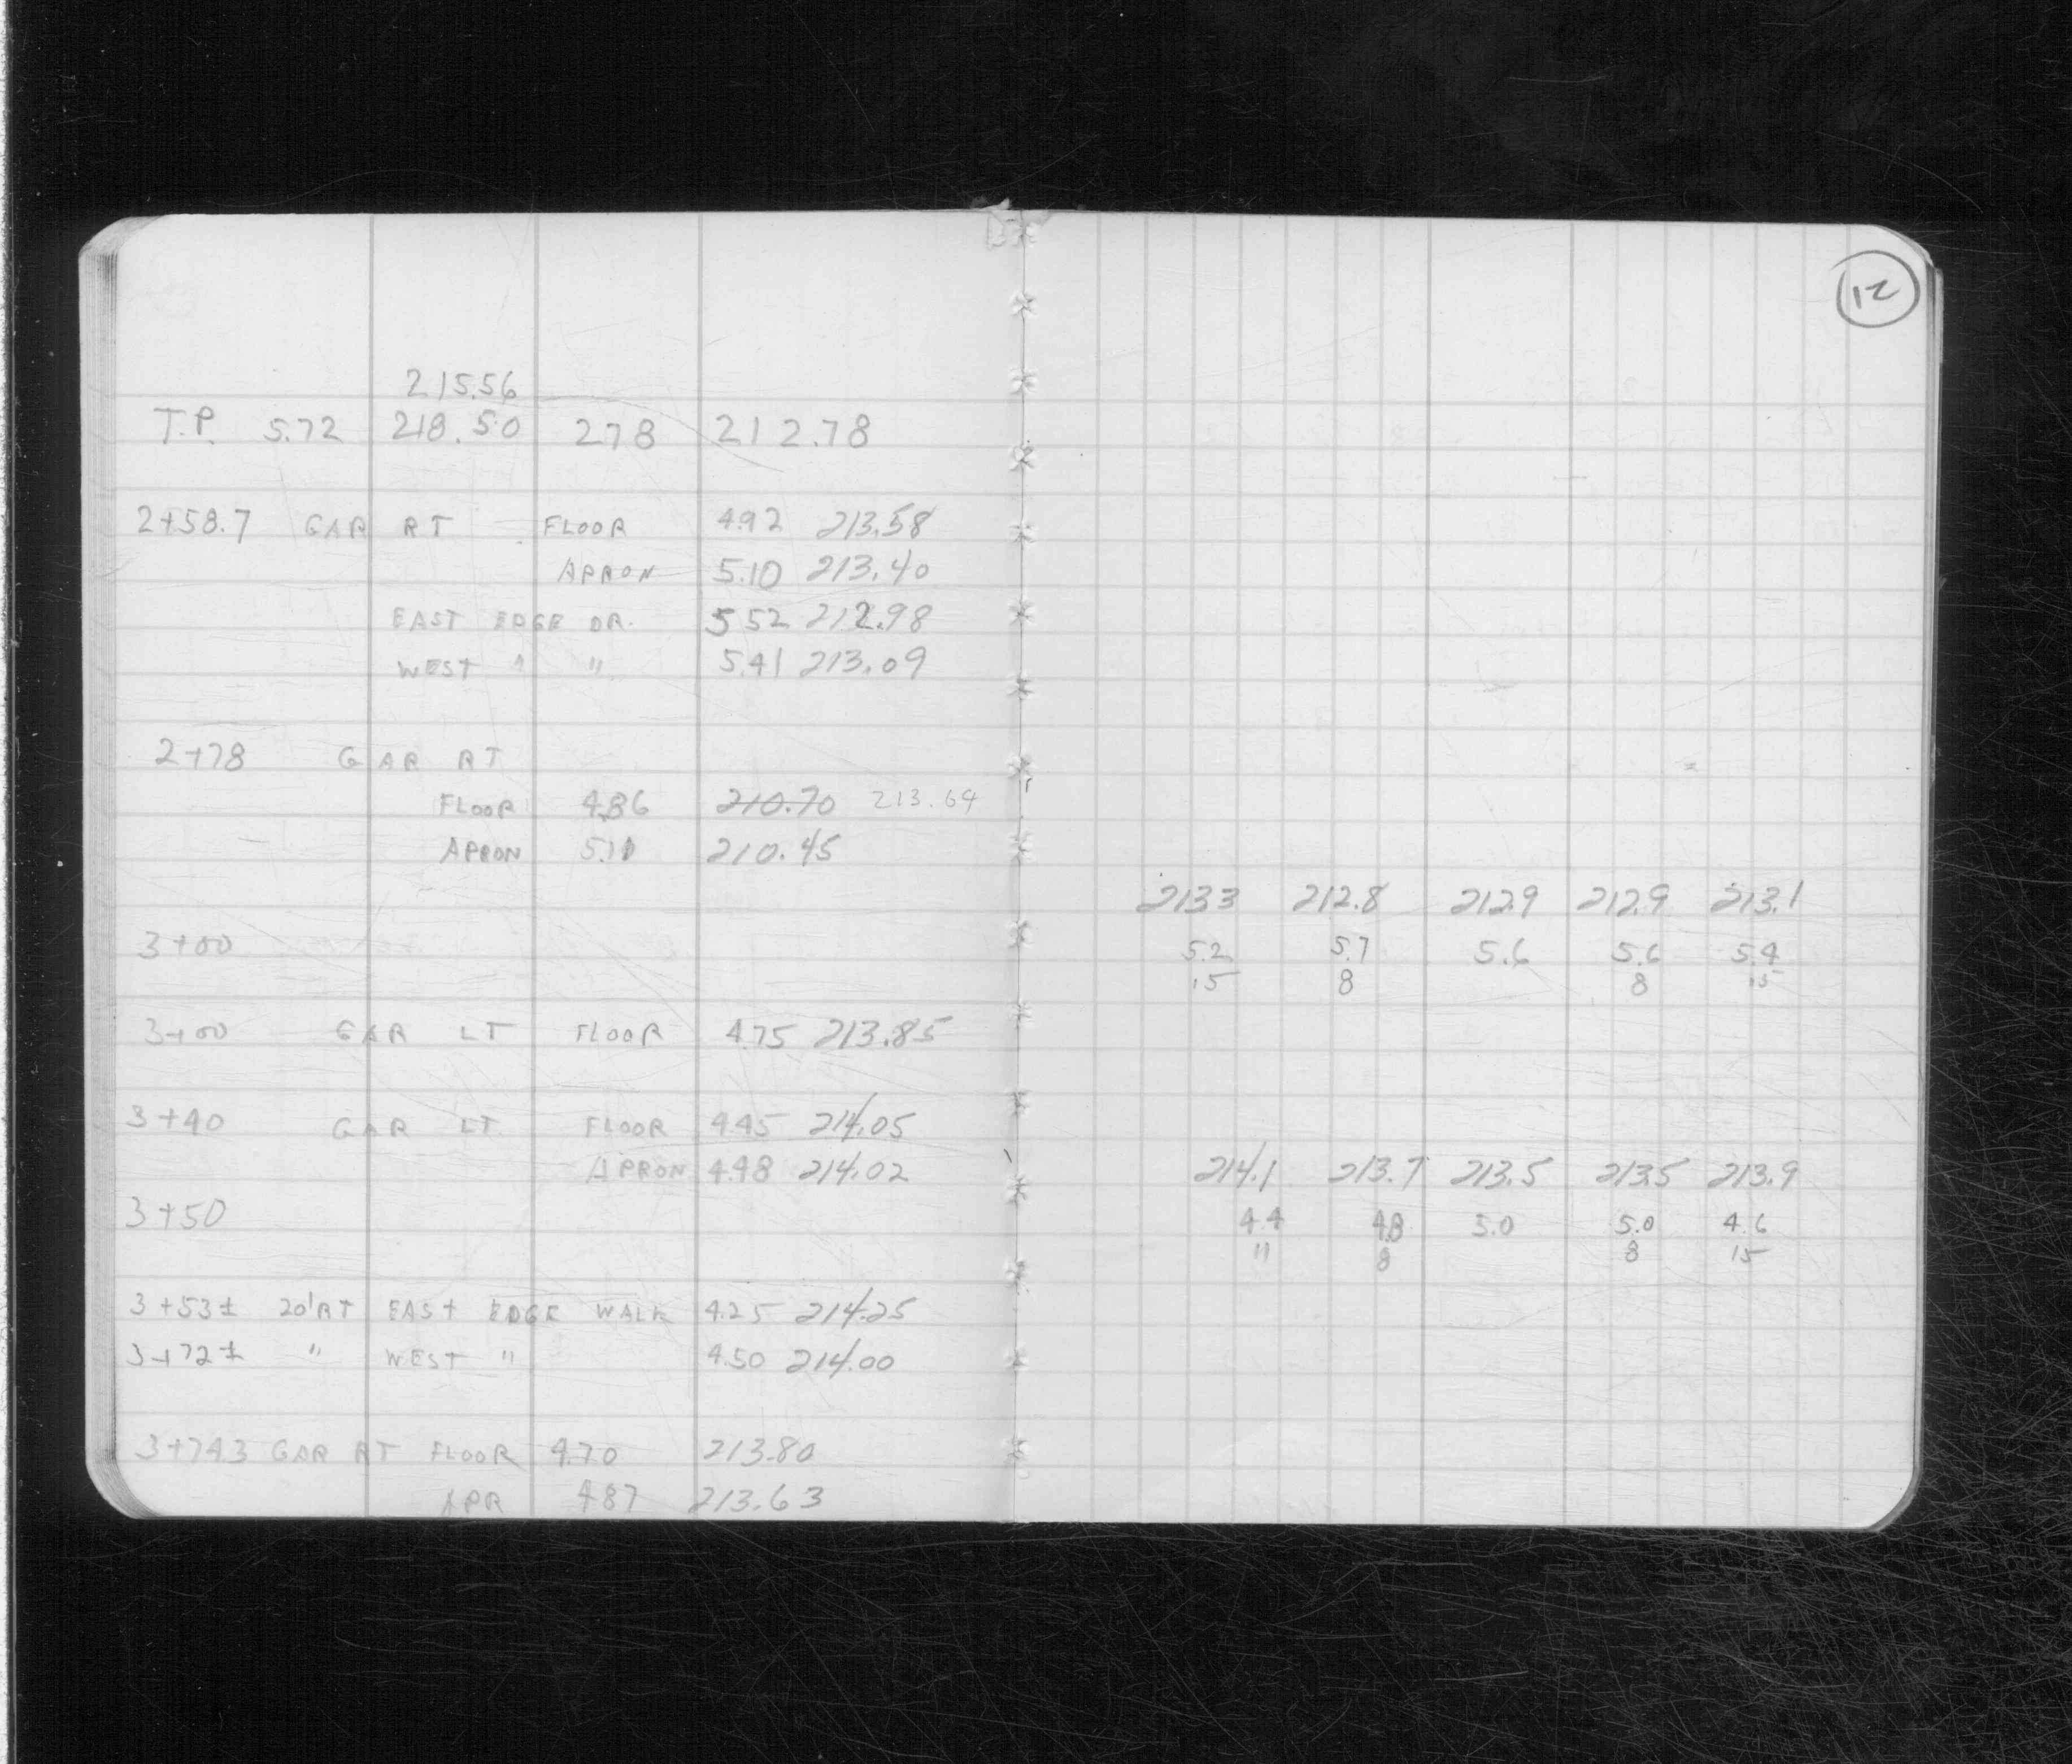 12
215.56
T.P. 5.72 218.50 278 212.78
2+58.7 GAR RT FLOOR 4.92 213.58
APRON 5.10 213.40
EAST EDGE DR. 5 52 212.98
WEST " " 5.41 213.09
2+78 GAR RT
FLOOR 4.86 210.70 213.64
APRON 5.11 210.45
213 3 212.8 212.9 212.9 213.1
3+00 5.2 5.7 5.6 5.6 5.4
15 8 8 15
3+00 GAR LT FLOOR 4.75 213.85
3+40 GAR LT FLOOR 4.45 214.05
APRON 4.48 214.02 214.1 213.7 213.5 213.5 213.9
3+50 4.4 4.8 5.0 5.0 4.6
11 8 8 15
3+53± 20' RT EAST EDGE WALK 4.25 214.25
3+72± " WEST " 4.50 214.00
3+74.3 GAR RT FLOOR 4.70 213.80
APR 4.87 213.63